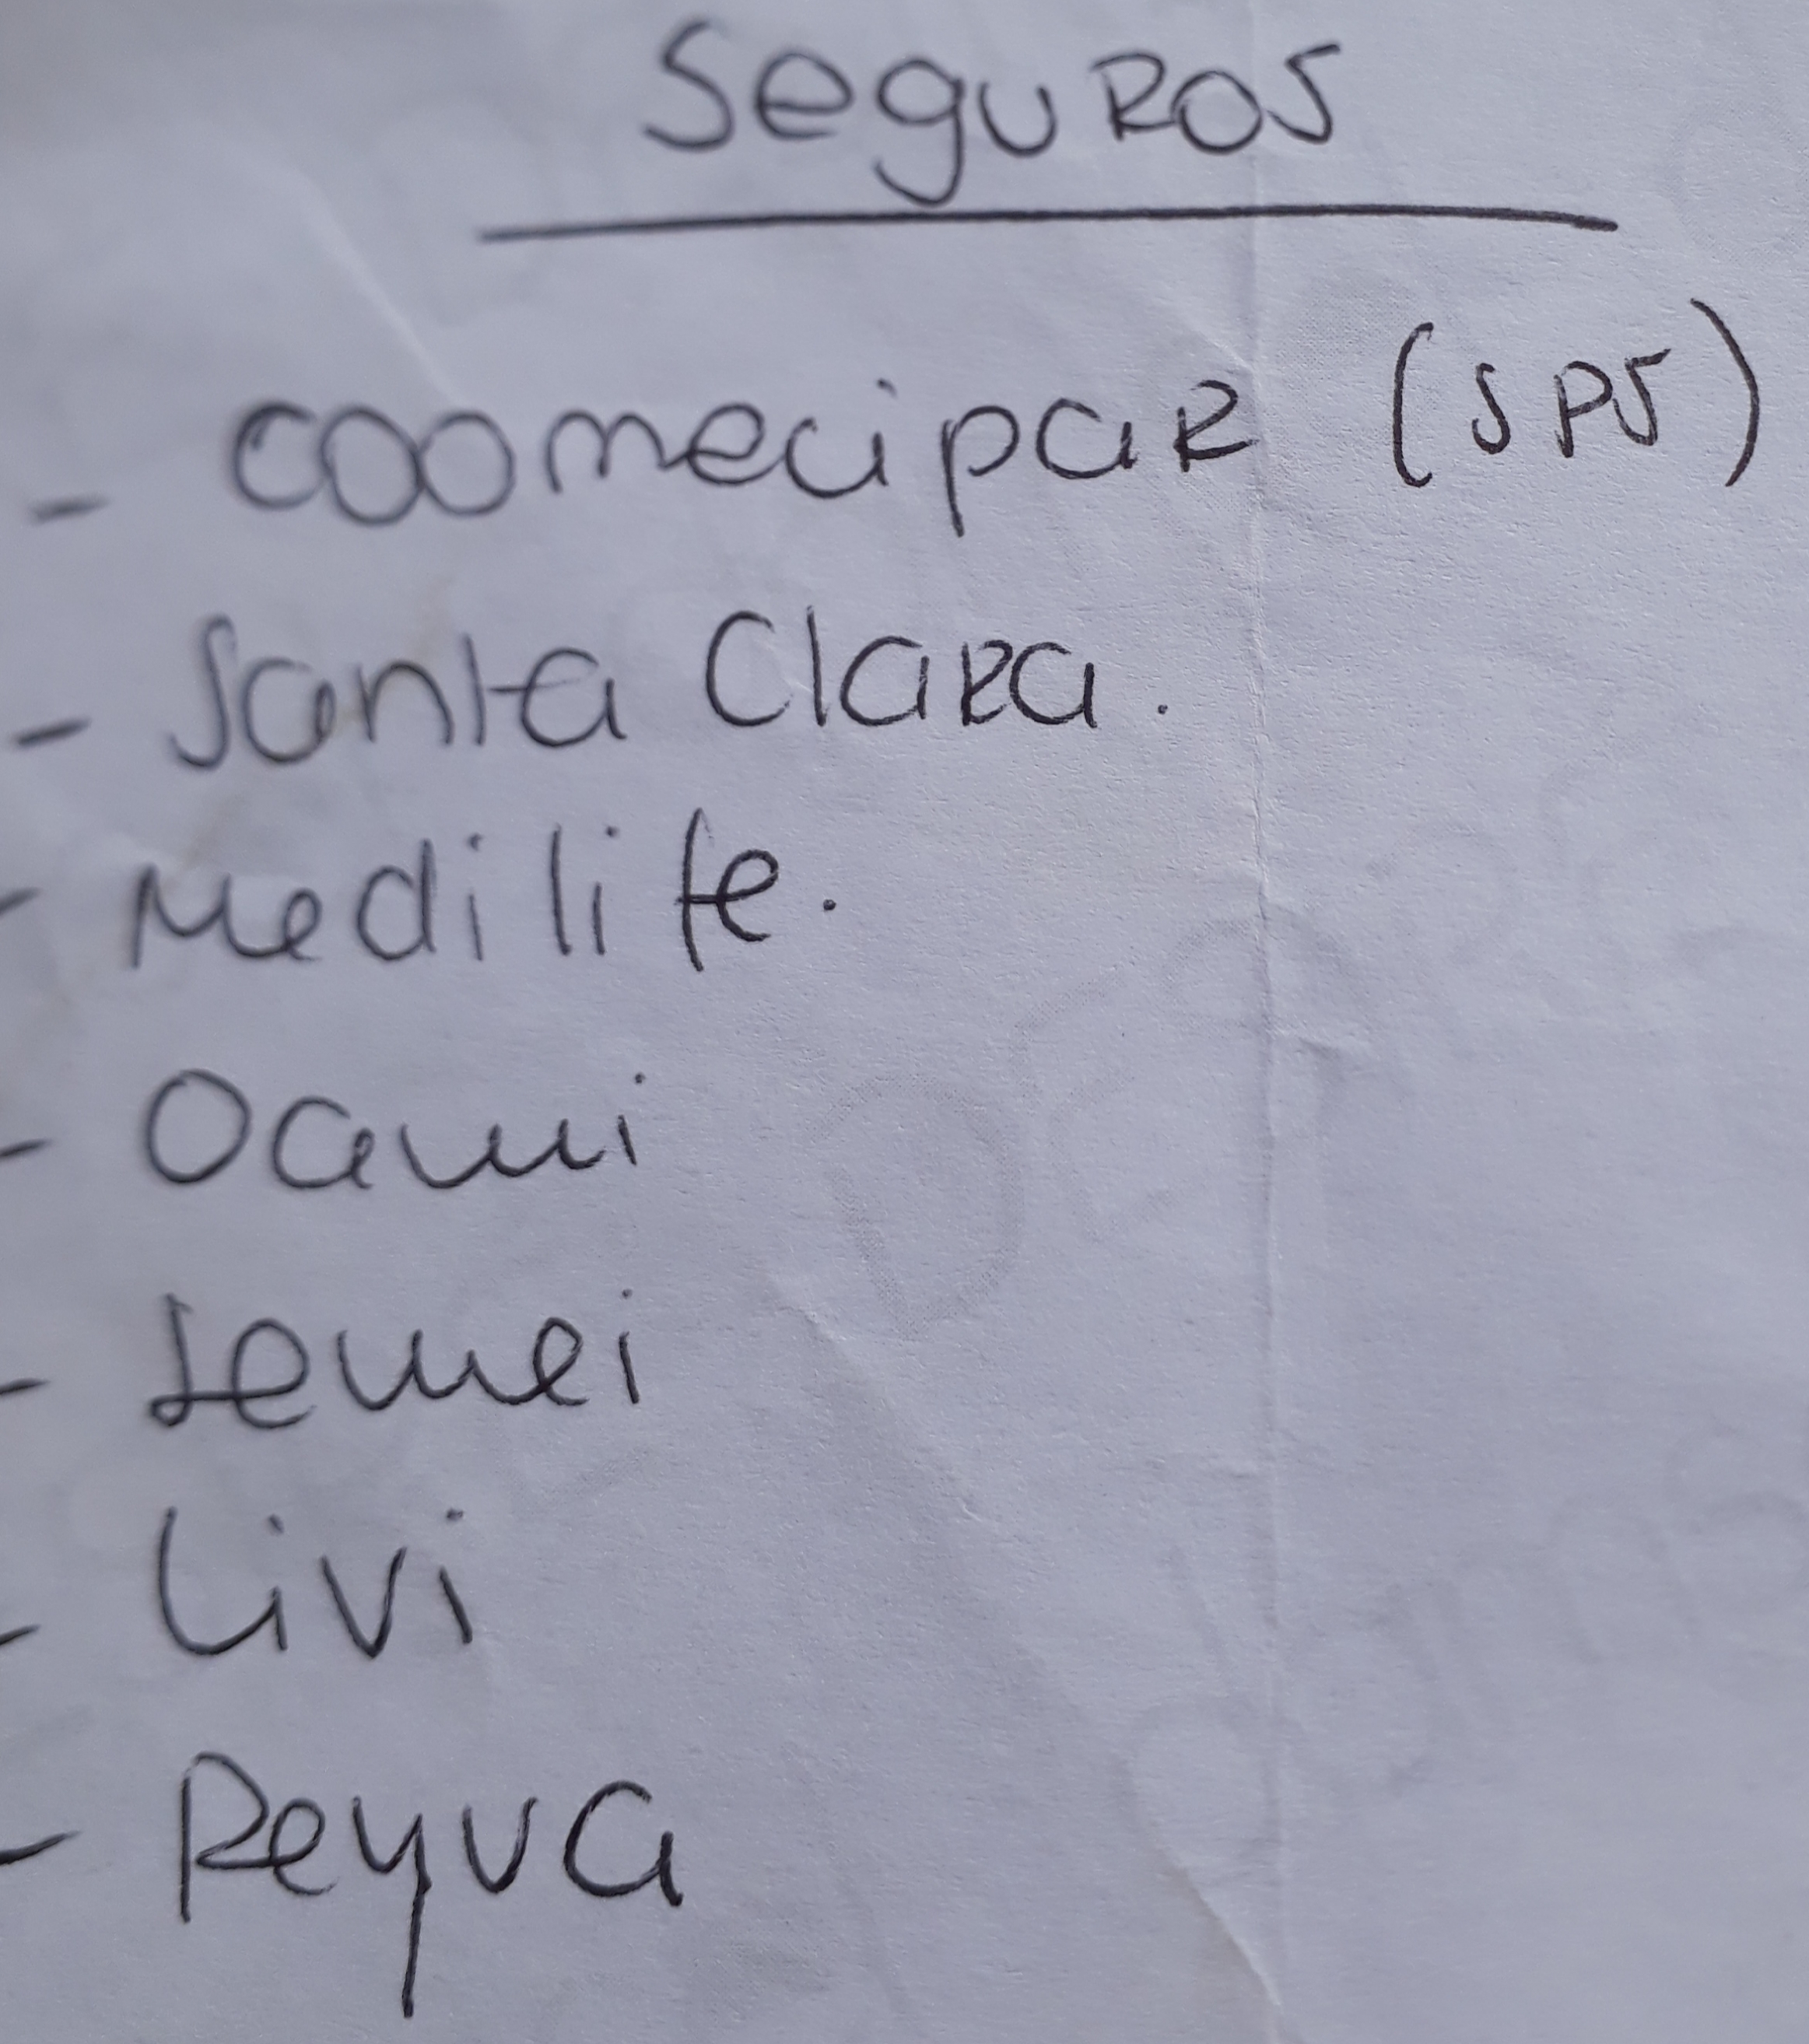 Seguros
- coomecipar (SPS)
- Santa Clara.
- Medilife.
- Oami
- Semei
- Livi
- Reyva